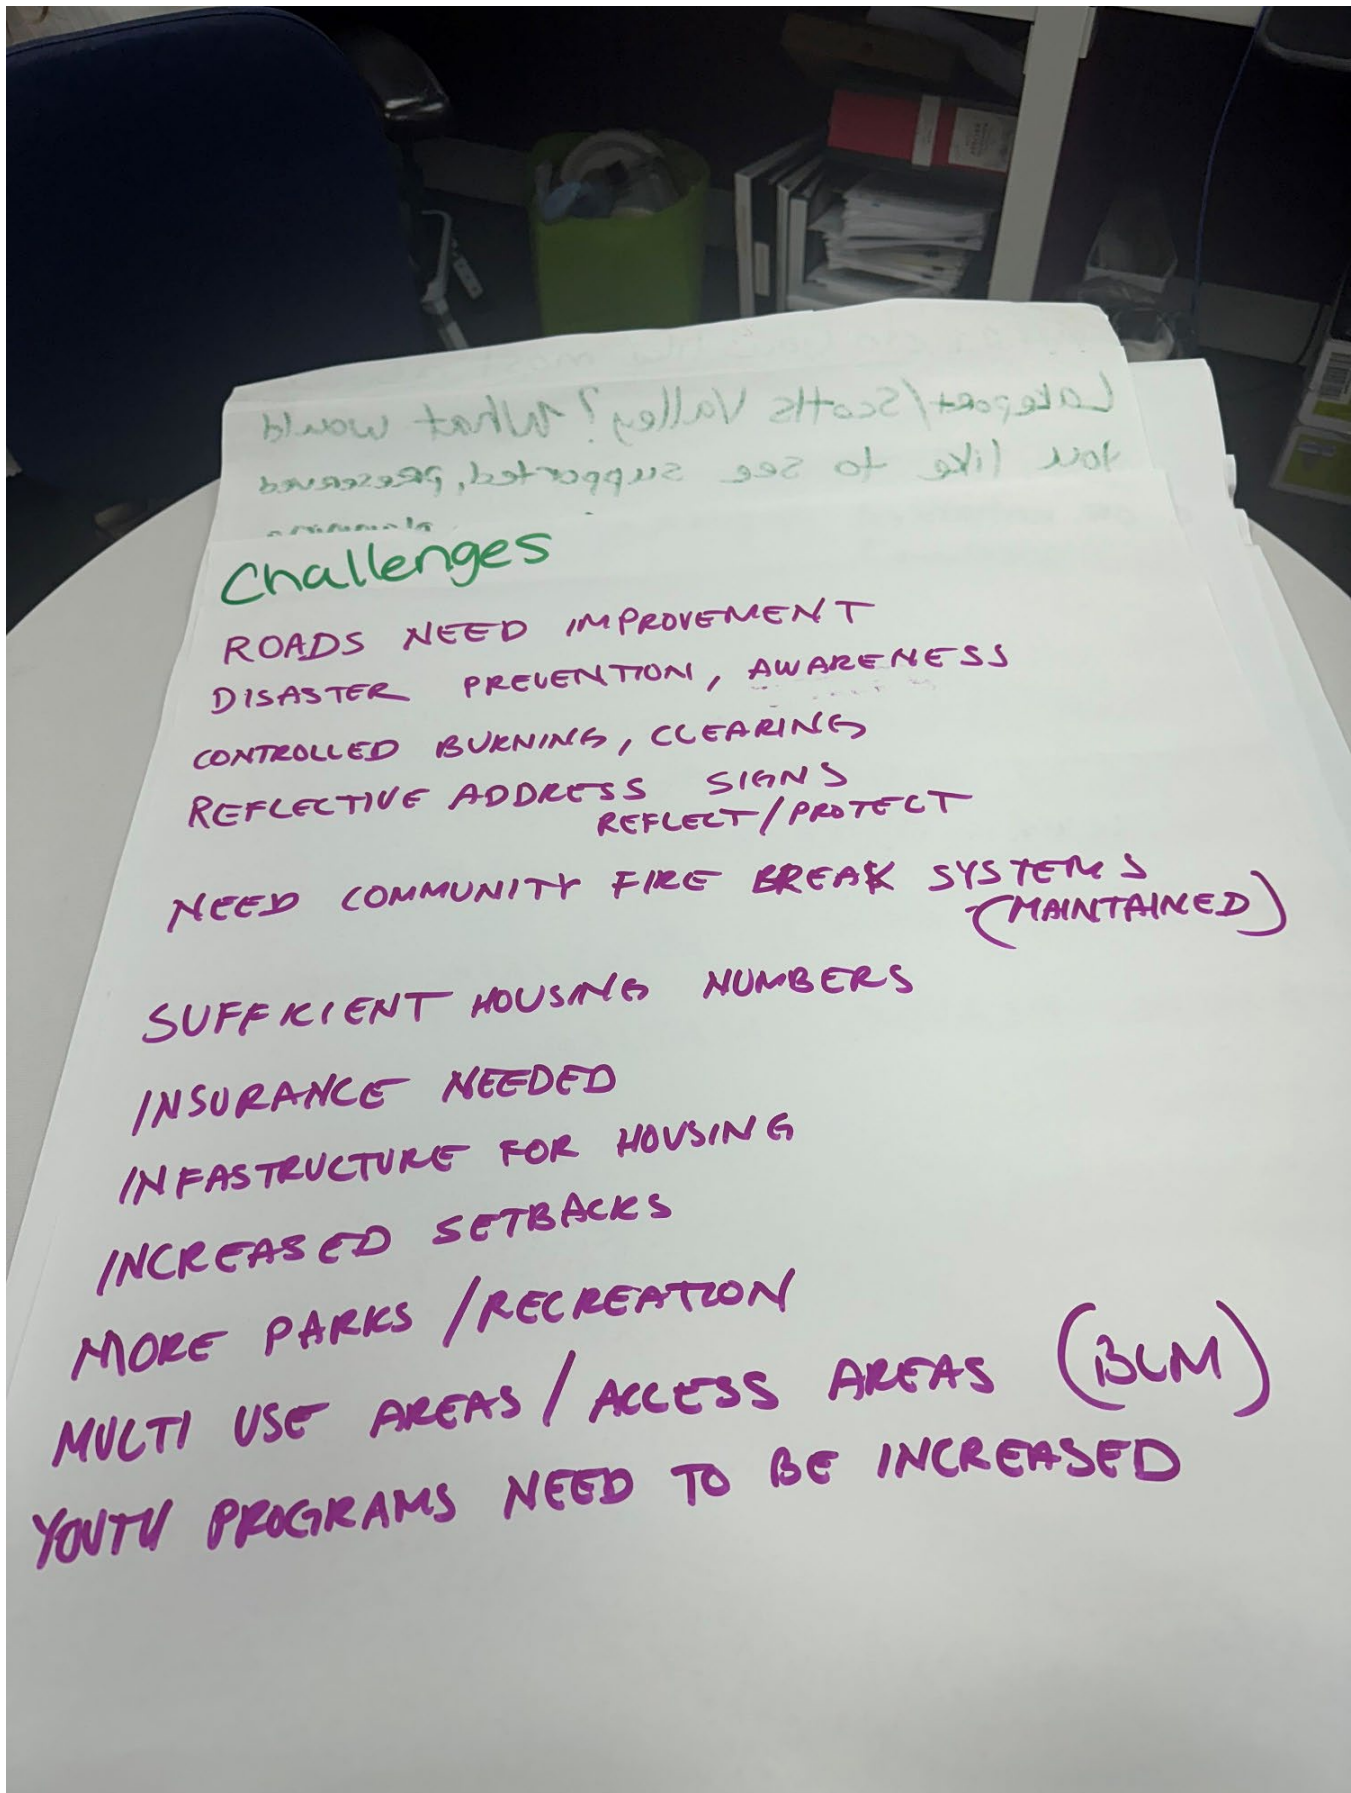 Lakeport/Scotts Valley? What would
you like to see supported, preserved
planning
Challenges
ROADS NEED IMPROVEMENT
DISASTER PREVENTION, AWARENESS
CONTROLLED BURNING, CLEARING
REFLECTIVE ADDRESS SIGNS
REFLECT/PROTECT
NEED COMMUNITY FIRE BREAK SYSTEMS
(MAINTAINED)
SUFFICIENT HOUSING NUMBERS
INSURANCE NEEDED
INFASTRUCTURE FOR HOUSING
INCREASED SETBACKS
MORE PARKS/RECREATION
MULTI USE AREAS/ACCESS AREAS (BLM)
YOUTH PROGRAMS NEED TO BE INCREASED